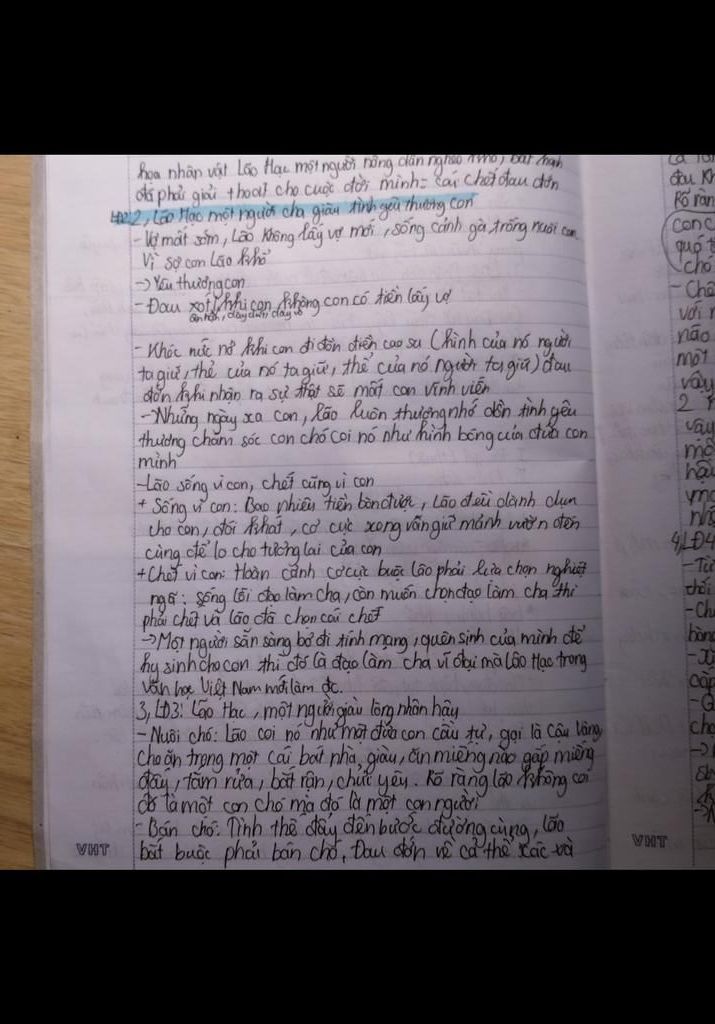 họa nhân vật Lão Hạc một người nông dân nghèo khổ, bất hạnh
đã phải giải thoát cho cuộc đời mình = cái chết đau đớn
LĐ2 2, Lão Hạc một người cha giàu tình yêu thương con
- Vợ mất sớm, Lão không lấy vợ mới, sống cảnh gà trống nuôi con
Vì sợ con Lão khổ
-> Yêu thương con
- Đau xót khi con không con có tiền lấy vợ
ân hận, day dứt, dày vò
- Khóc nức nở khi con đi đồn điền cao su (hình của nó người
ta giữ, thẻ của nó ta giữ, thẻ của nó người ta giữ) đau
đớn khi nhận ra sự thật sẽ mất con vĩnh viễn
- Những ngày xa con, lão luôn thương nhớ dồn tình yêu
thương chăm sóc con chó coi nó như hình bóng của đứa con
mình
- Lão sống vì con, chết cũng vì con
+ Sống vì con: Bao nhiêu tiền bòn được, Lão đều dành dụm
cho con, đói khát, cơ cực xong vẫn giữ mảnh vườn đến
cùng để lo cho tương lai của con
+ Chết vì con: Hoàn cảnh cơ cực buộc lão phải lựa chọn nghiệt
ngã: sống lỗi đạo làm cha, còn muốn chọn đạo làm cha thì
phải chết và lão đã chọn cái chết
-> Một người sẵn sàng bỏ đi tính mạng, quên sinh của mình để
hy sinh cho con thì đó là đạo làm cha vĩ đại mà Lão Hạc trong
Văn học Việt Nam mới làm đc.
3, LĐ3: Lão Hạc, một người giàu lòng nhân hậu
- Nuôi chó: Lão coi nó như một đứa con cầu tự, gọi là Cậu Vàng,
cho ăn trong một cái bát nhà giàu, ăn miếng nào gắp miếng
đấy, tắm rửa, bắt rận, chửi yêu. Rõ ràng lão không coi
đó là một con chó mà đó là một con người
- Bán chó: Tình thế đẩy đến bước đường cùng, lão
bắt buộc phải bán chó. Đau đớn về cả thể xác và
VHT
đau kh
Rõ ràn
con c
quá t
chó
- Chă
với n
não
một
vậy
2
vậy
mộ
hậu
4, LĐ4
- Từ
thổi
- Ch
bằng
- X
cấp
- Q
VHT